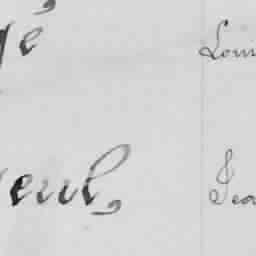 gé Loui
eul, Jea